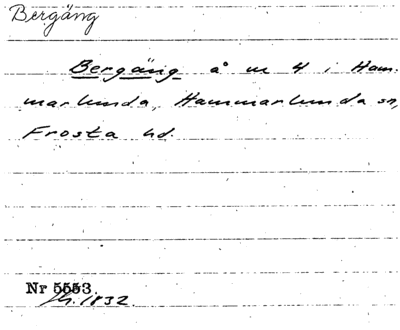 Bergäng
Bergäng å nr 4 i Ham-
marlunda, Hammarlunda sn,
Frosta hd.
Nr 5553.
1832